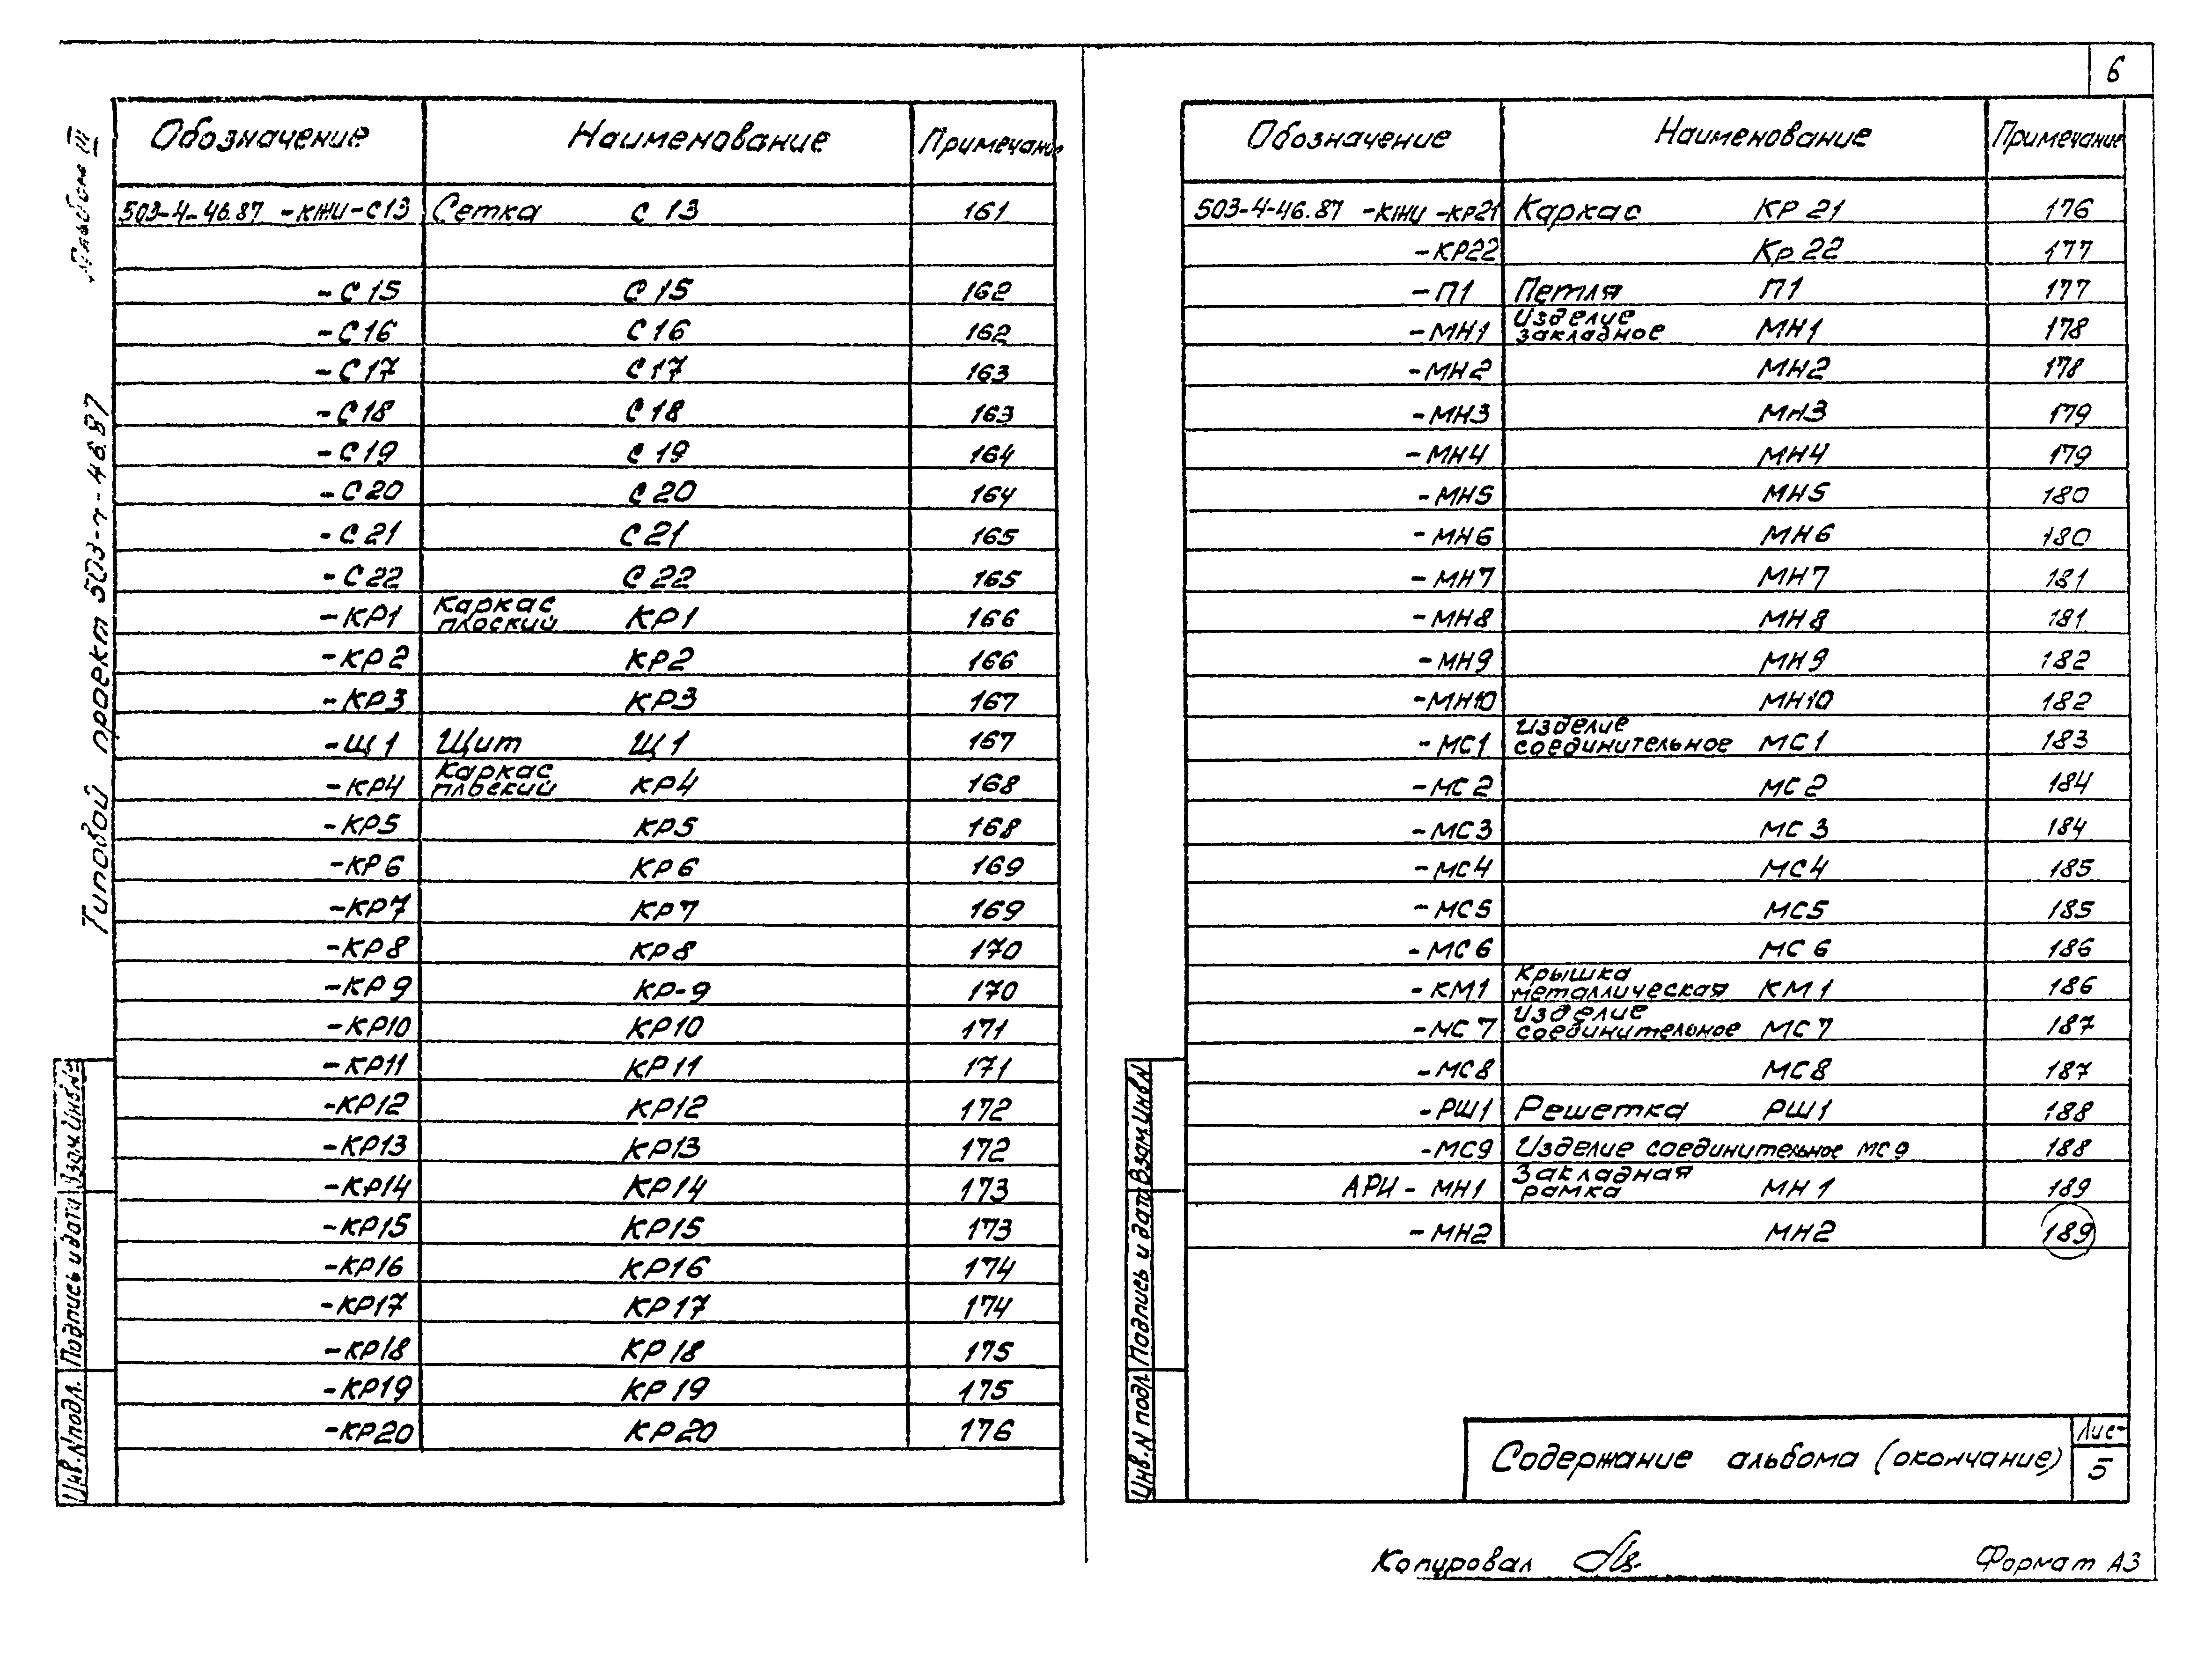 6
Альбом III
Типовой проект 503-4-46.87
Обозначение Наименование Примечание
503-4-46.87 -КЖИ-С13 Сетка С 13 161
-С15 С15 162
-С16 С16 162
-С17 С17 163
-С18 С18 163
-С19 С19 164
-С20 С20 164
-С21 С21 165
-С22 С22 165
-КР1 Каркас плоский КР1 166
-КР2 КР2 166
-КР3 КР3 167
-Щ1 Щит Щ1 167
-КР4 Каркас плоский КР4 168
-КР5 КР5 168
-КР6 КР6 169
-КР7 КР7 169
-КР8 КР8 170
-КР9 КР-9 170
-КР10 КР10 171
-КР11 КР11 171
-КР12 КР12 172
-КР13 КР13 172
-КР14 КР14 173
-КР15 КР15 173
-КР16 КР16 174
-КР17 КР17 174
-КР18 КР18 175
-КР19 КР19 175
-КР20 КР20 176
Инв.N подл. Подпись и дата Взам.Инв.N
Обозначение Наименование Примечание
503-4-46.87 -КЖИ -КР21 Каркас КР21 176
-КР22 Кр22 177
-П1 Петля П1 177
-МН1 Изделие закладное МН1 178
-МН2 МН2 178
-МН3 МН3 179
-МН4 МН4 179
-МН5 МН5 180
-МН6 МН6 180
-МН7 МН7 181
-МН8 МН8 181
-МН9 МН9 182
-МН10 МН10 182
-МС1 Изделие соединительное МС1 183
-МС2 МС2 184
-МС3 МС3 184
-МС4 МС4 185
-МС5 МС5 185
-МС6 МС6 186
-КМ1 Крышка металлическая КМ1 186
-МС7 Изделие соединительное МС7 187
-МС8 МС8 187
-РШ1 Решетка РШ1 188
-МС9 Изделие соединительное МС9 188
АРИ - МН1 Закладная рамка МН1 189
-МН2 МН2 189
Инв.N подл. Подпись и дата Взам.Инв.N
Содержание альбома (окончание)
Лис
5
Копировал
Формат А3